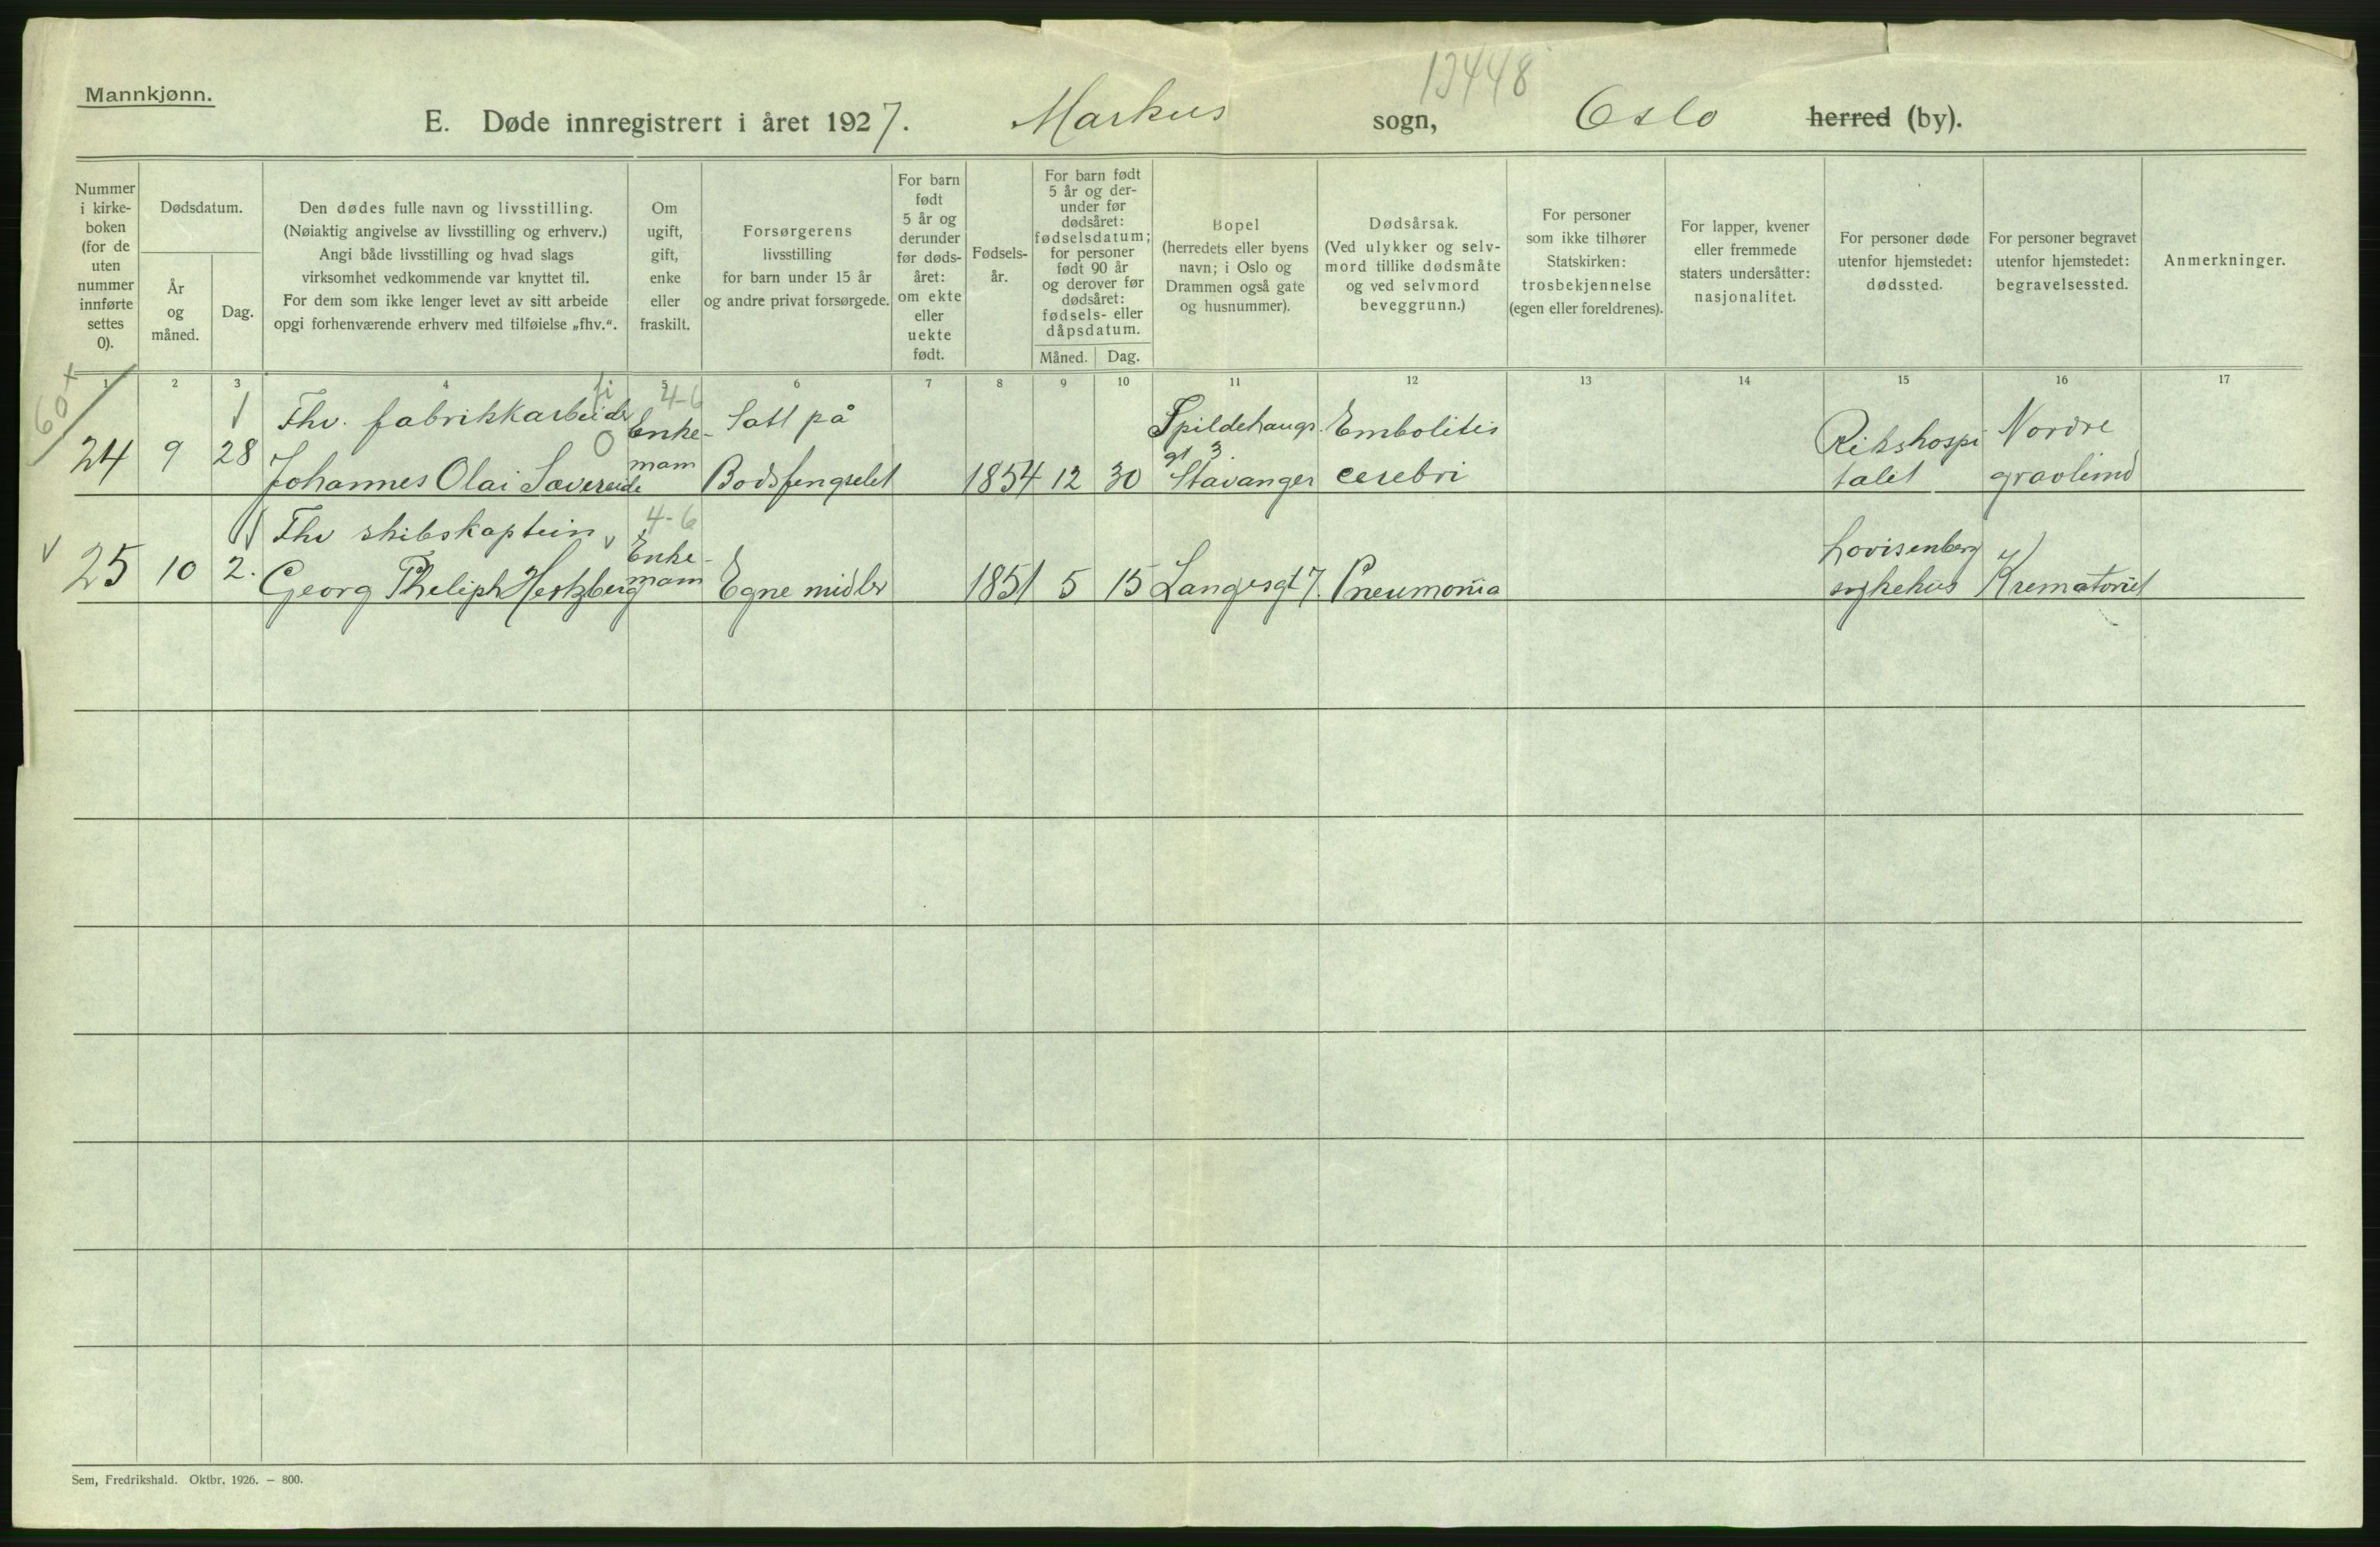 Mannkjønn.
13448
E. Døde innregistrert i året 1927. Markus sogn, Oslo herred (by).
Nummer
i kirke-
boken
(for de
uten
nummer
innførte
settes
0).
Dødsdatum.
År
og
måned.
Dag.
Den dødes fulle navn og livsstilling.
(Nøiaktig angivelse av livsstilling og erhverv.)
Angi både livsstilling og hvad slags
virksomhet vedkommende var knyttet til.
For dem som ikke lenger levet av sitt arbeide
opgi forhenværende erhverv med tilføielse „fhv.“.
Om
ugift,
gift,
enke
eller
fraskilt.
Forsørgerens
livsstilling
for barn under 15 år
og andre privat forsørgede.
For barn
født
5 år og
derunder
før døds-
året:
om ekte
eller
uekte
født.
Fødsels-
år.
For barn født
5 år og der-
under før
dødsåret:
fødselsdatum;
for personer
født 90 år
og derover før
dødsåret:
fødsels- eller
dåpsdatum.
Måned.
Dag.
Bopel
(herredets eller byens
navn; i Oslo og
Drammen også gate
og husnummer).
Dødsårsak.
(Ved ulykker og selv-
mord tillike dødsmåte
og ved selvmord
beveggrunn.)
For personer
som ikke tilhører
Statskirken:
trosbekjennelse
(egen eller foreldrenes).
For lapper, kvener
eller fremmede
staters undersåtter:
nasjonalitet.
For personer døde
utenfor hjemstedet:
dødssted.
For personer begravet
utenfor hjemstedet:
begravelsessted.
Anmerkninger.
1 2 3 4 5 6 7 8 9 10 11 12 13 14 15 16 17
60+
24
9
28
Fhv. fabrikkarbeider
Johannes Olai Sævereide
4-6
Enke-
mann
Satt på
Bodsfengselet
1854
12
30
Spildehaugs.
gt 3.
Stavanger
Embolitis
cerebri
Rikshospi
talet
Nordre
gravlund
25
10
2.
Fhv skibskaptein
Georg Pheliph Hertzberg
4-6
Enke-
mann
Egne midler
1851
5
15
Langesgt 7.
Pneumonia
Lovisenberg
sykehus
Krematoriet
Sem, Fredrikshald. Oktbr. 1926. – 800.